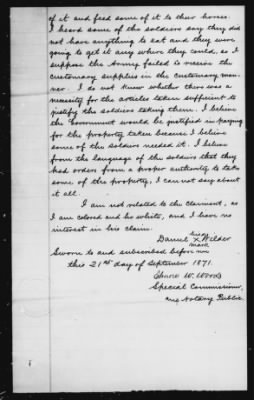 of it and feed some of it to their horses.
I heard some of the soldiers say they did
not have anything to eat and they were
going to get it any where they could, so I
suppose the Army failed to receive the
customary supplies in the customary man-
ner. I do not know whether there was a
necessity for the articles taken sufficient to
justify the soldiers taking them. I believe
the Government would be justified in paying
for the property taken because I believe
some of the soldiers needed it. I believe
from the language of the soldiers that they
had orders from a proper authority to take
some of the property, I can not say about
it all.
I am not related to the claimant, as
I am colored and he white, and I have no
interest in his claim.
his
Daniel x Wilder
mark
Sworn to and subscribed before me
this 21st day of September 1871.
W. Woods
Special Commissioner,
and Notary Public